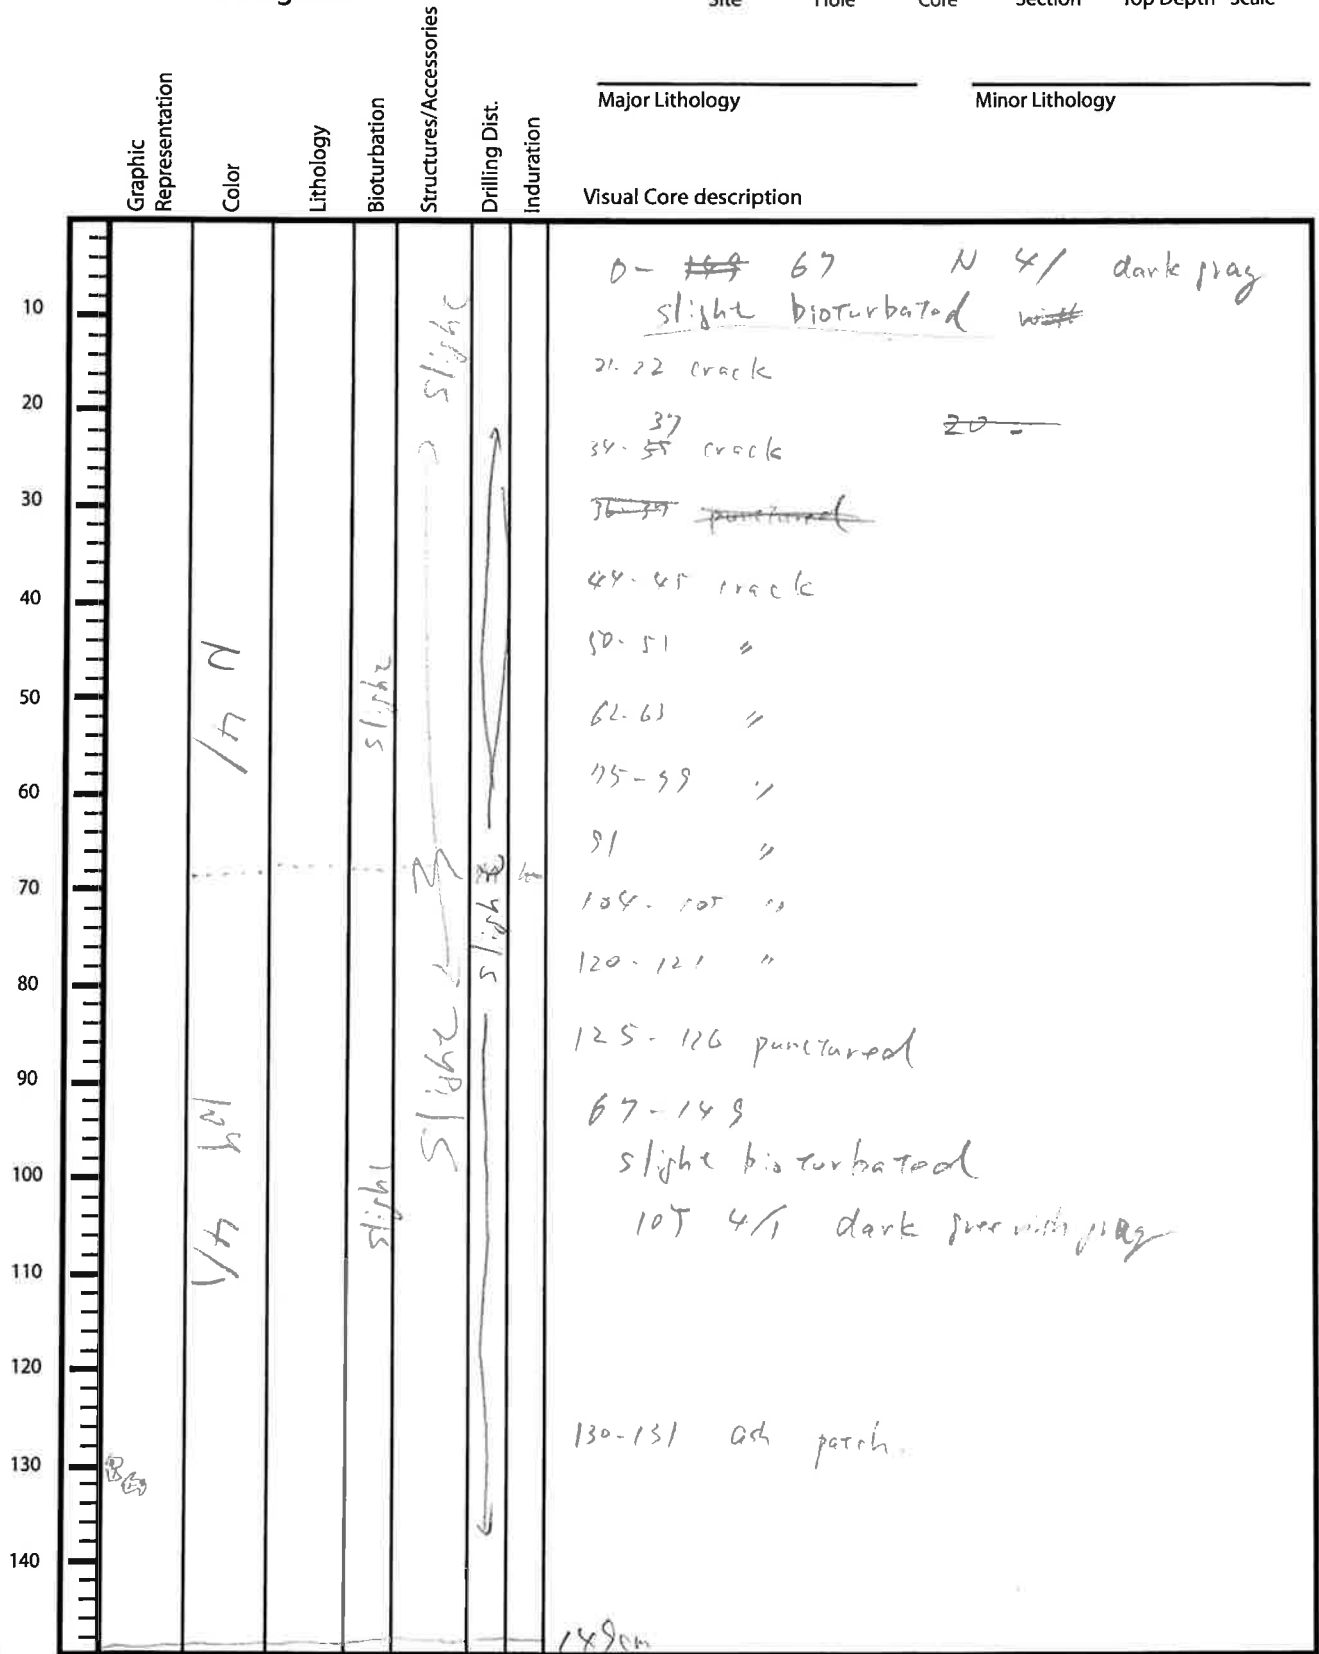 Site Hole Core Section Top Depth Scale
Major Lithology Minor Lithology
Graphic Representation
Color
Lithology
Bioturbation
Structures/Accessories
Drilling Dist.
Induration
Visual Core description
10
20
30
40
50
60
70
80
90
100
110
120
130
140
N 4/
slight
slight
slight
M
slight
slight
slight
4/1
0 - 149 67 N 4/ dark gray
slight bioturbated with
21-22 crack
37
34-35 crack
20 -
36-37 punctured
44-45 crack
50-51 "
62-63 "
"
91 "
104-105 "
120-121 "
125-126 punctured
67-149
slight bioturbated
10Y 4/1 dark greenish gray
130-131 ash patch
149cm